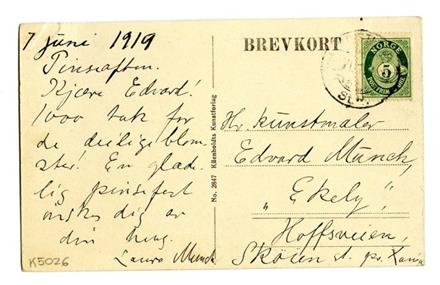 7 juni 1919
Pinseaften.
Kjære Edvard!
1000 tak for
de deilige blom
ster! En glæde
lig pinsefest
ønskes dig av
din heng.
Laura Munch
K5026
BREVKORT
NORGE
5
No. 2647 Küenholdts Kunstforlag
Hr. kunstmaler
Edvard Munch,
"Ekely",
Hoffsveien,
Skøien st. pr. Kania